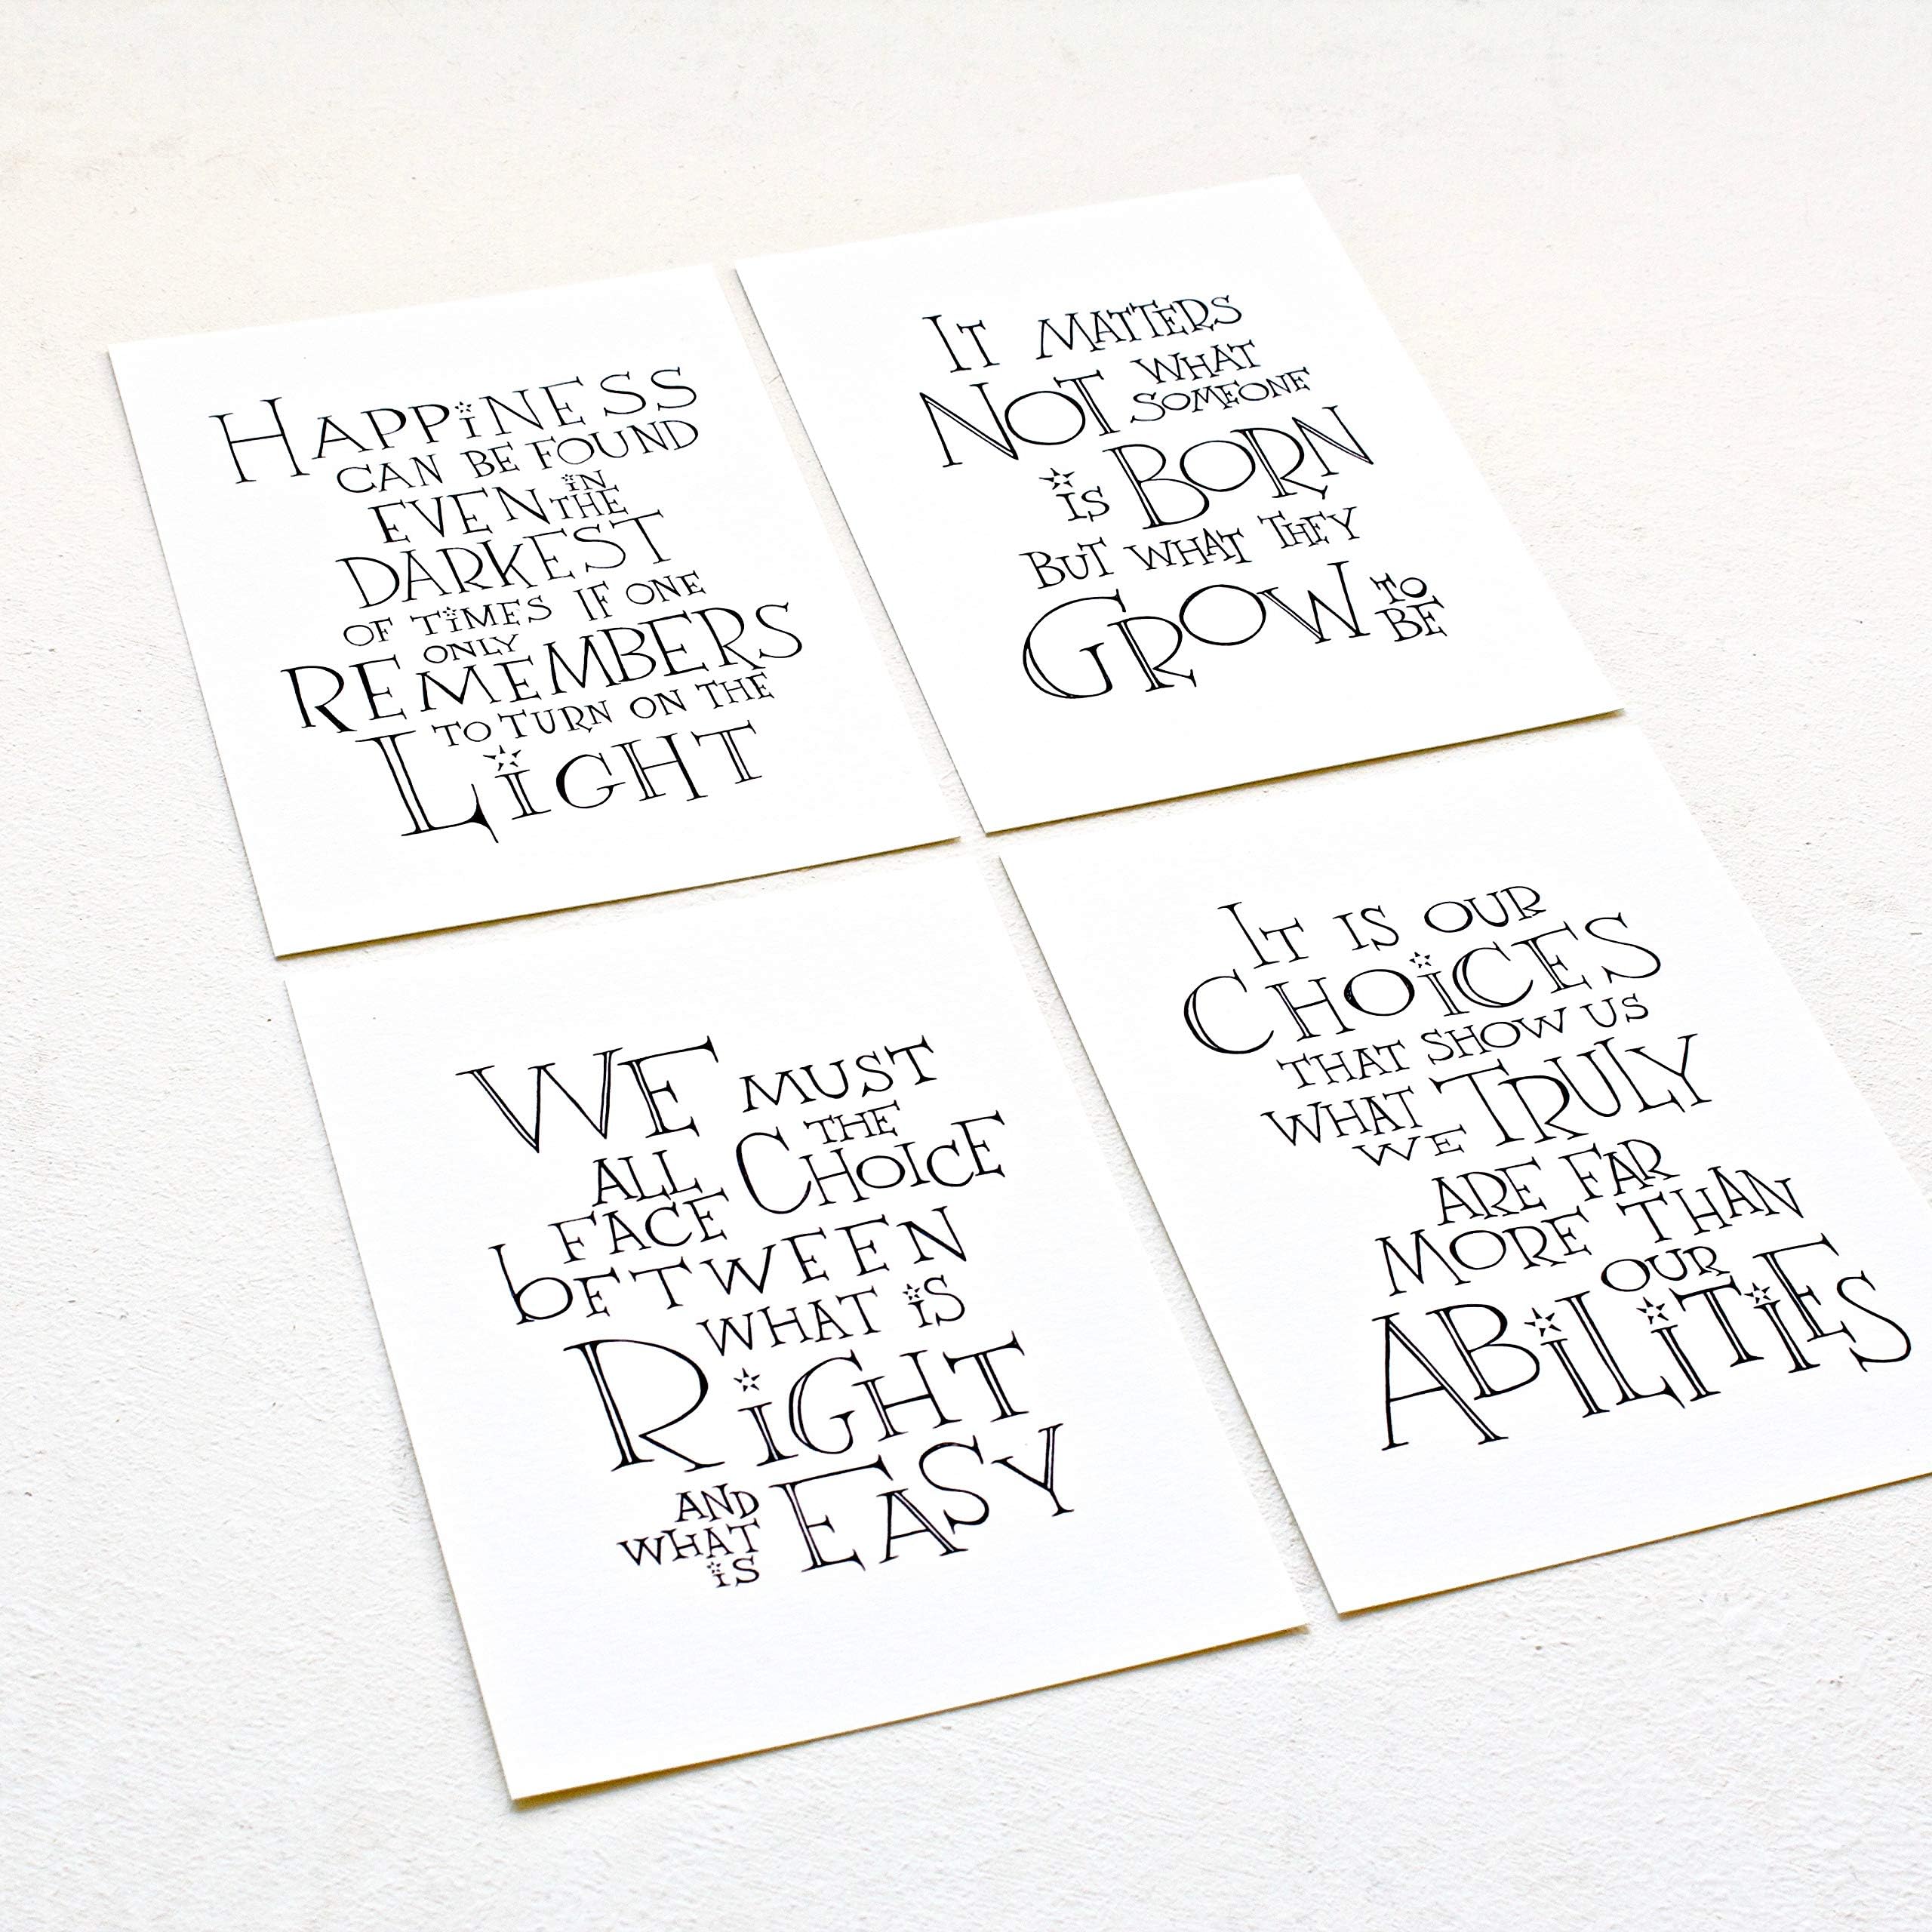 HAPPiNESS
CAN BE FOUND
EVEN iN THE
DARKEST
OF TiMES IF ONE
ONLY
REMEMBERS
TO TURN ON THE
LiGHT
IT MATTERS
NOT WHAT SOMEONE
iS BORN
BUT WHAT THEY
GROW TO BE
WE MUST
ALL FACE THE CHOICE
bETWEEN
WHAT iS
RiGHT
AND WHAT iS EASY
IT IS OUR
CHOiCES
THAT SHOW US
WHAT WE TRULY
ARE FAR
MORE THAN
OUR
ABiLiTiES